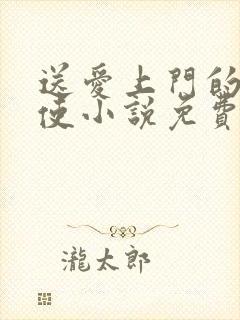 送愛上門的
使小說免費
瀧太郎